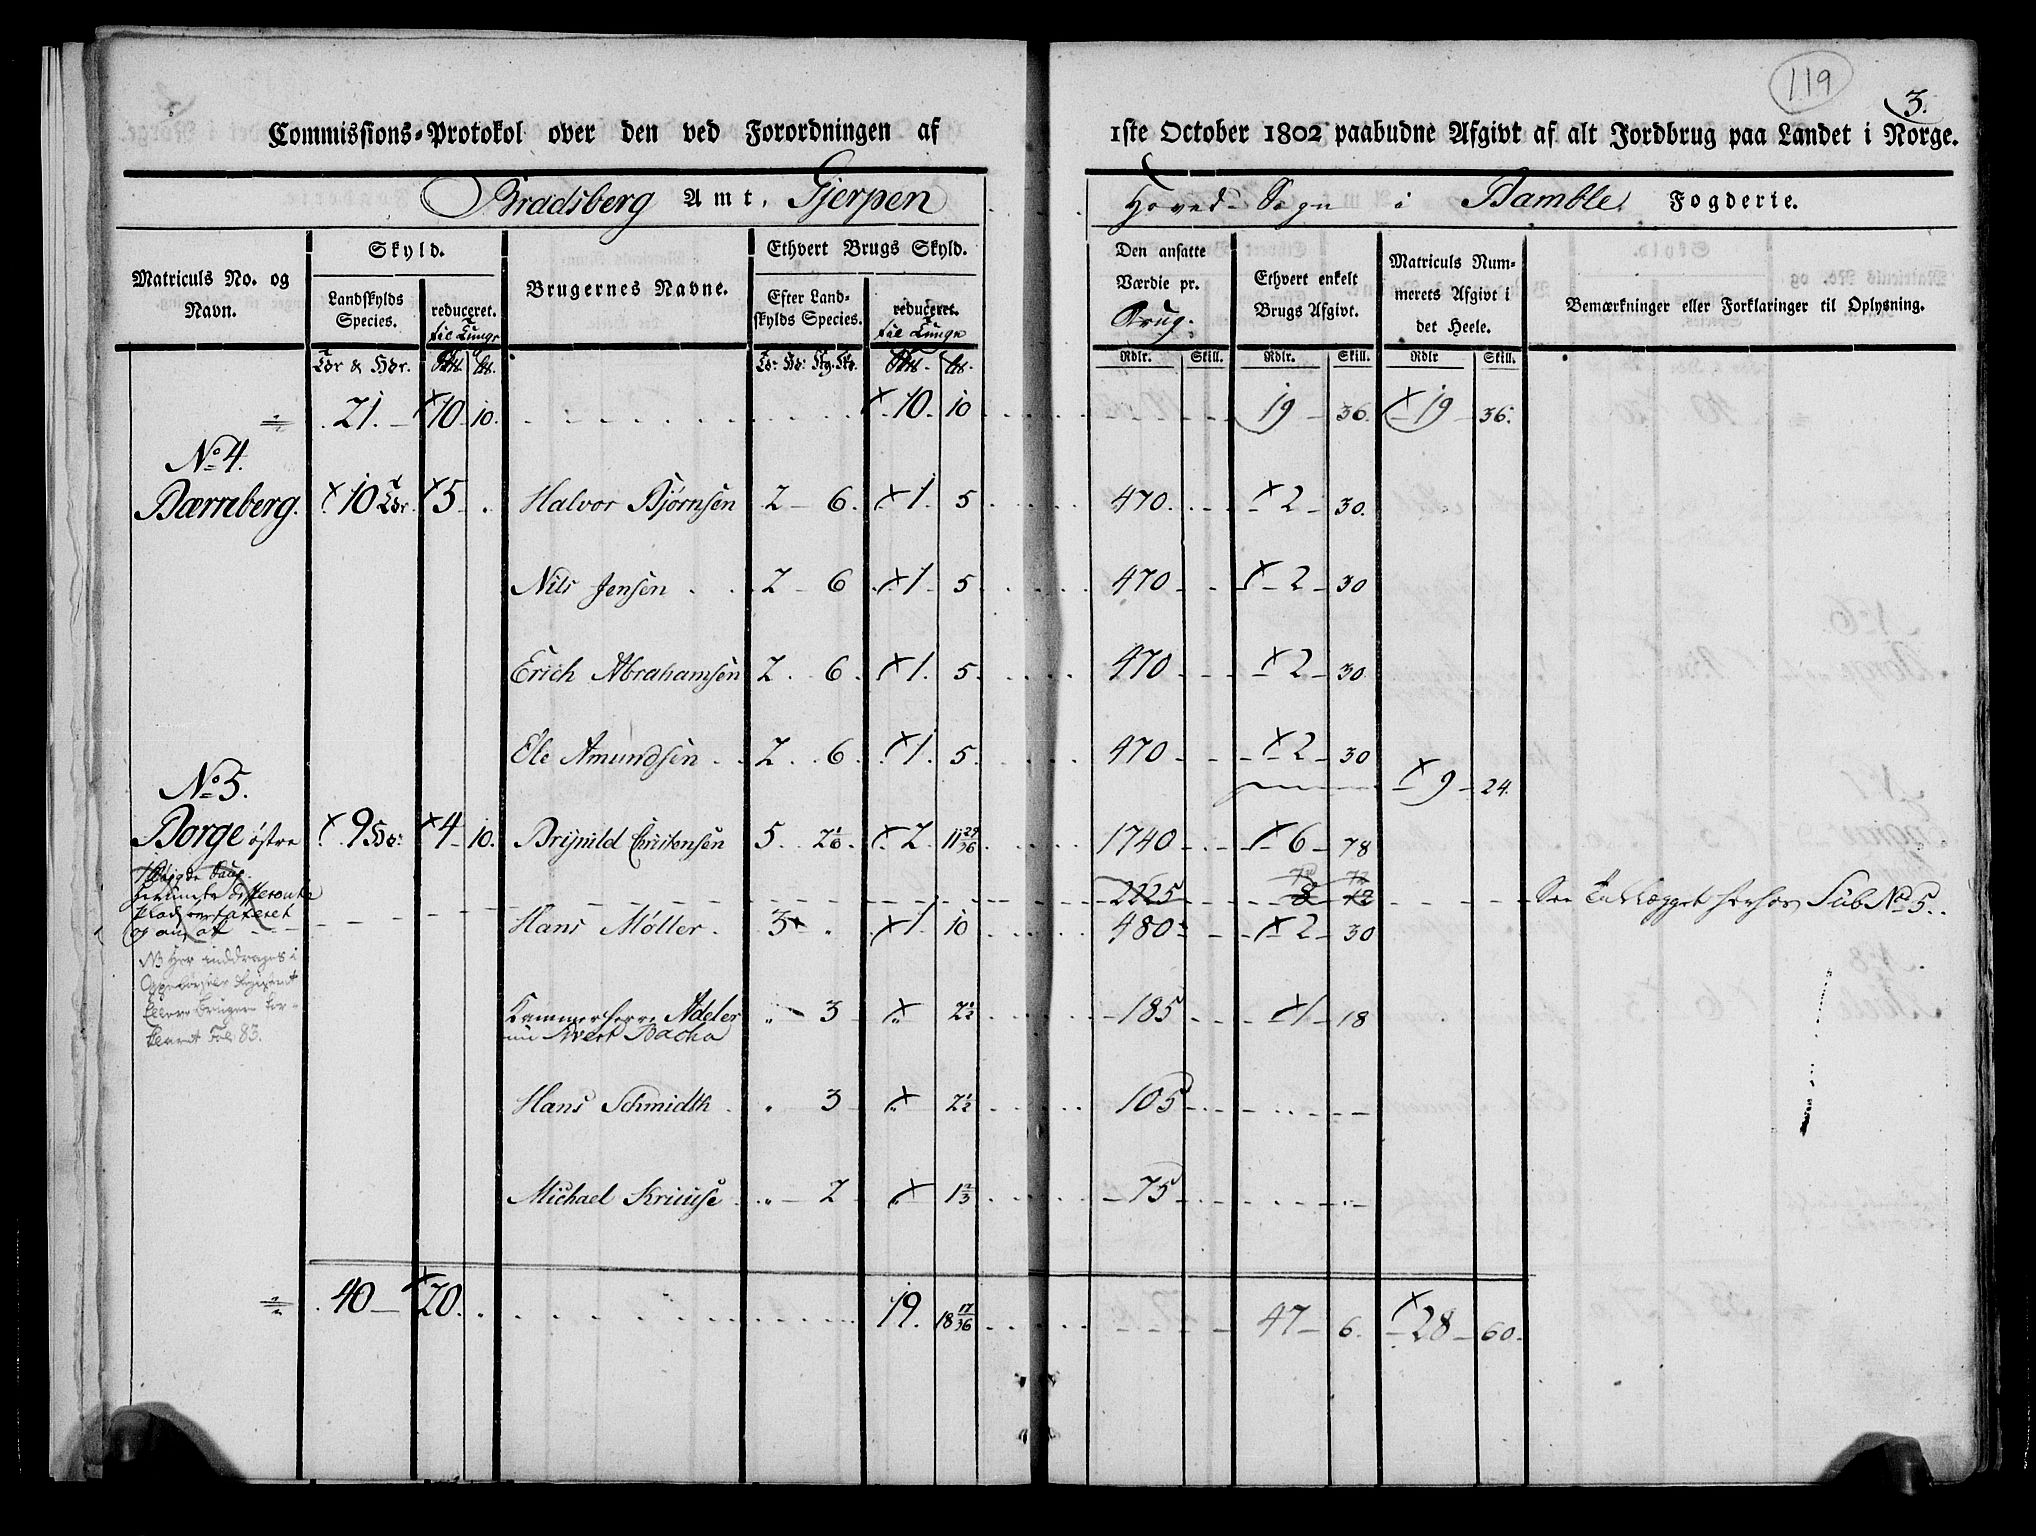 119
3.
Commissions-Protokol over den ved Forordningen af 1ste October 1802 paabudne Afgivt af alt Jordbrug paa Landet i Norge.
Bradsberg Amt, Gjerpen Hoved-Sogn i Bamble Fogderie.
Matriculs No. og Navn. Skyld. Brugernes Navne. Ethvert Brugs Skyld. Den ansatte Værdie pr. Brug. Ethvert enkelt Brugs Afgivt. Matriculs Nummerets Afgivt i det Heele. Bemærkninger eller Forklaringer til Oplysning.
Landskylds Species. reduceret. til Tunge Efter Landskylds Species. reduceret. til Tunge
Rdlr. Skill. Rdlr. Skill. Rdlr Skill.
21. 10 10. 10. 10 19 36. 19 36.
No 4.
Bærreberg. 10 5 Halvor Bjørnsen 2 6. 1. 5 470. 2 30.
Nils Jensen 2 6 1. 5 470 2 30
Erich Abrahamsen 2. 6. 1. 5. 470 2 30
Ole Amundsen 2. 6. 1. 5. 470 2 30
9 24.
No 5.
Borge østre 9 4 10. Brynild Christensen 5 2 11 29/36 1740 6 78
2225 8 See Tillægget herfor Sub No 5.
Hans Møller 3 1 10 480 2 30
NB Her inddrages i
Kammerherre Adeler 3 2 1/2 185 1 18
nu Evert Backa
Fol: 83.
Hans Schmidth 3 2 1/2 105
Michael Kruuse 2 1 2/3 75
40 20. 19. 18 17/36 47 6. 28 60.